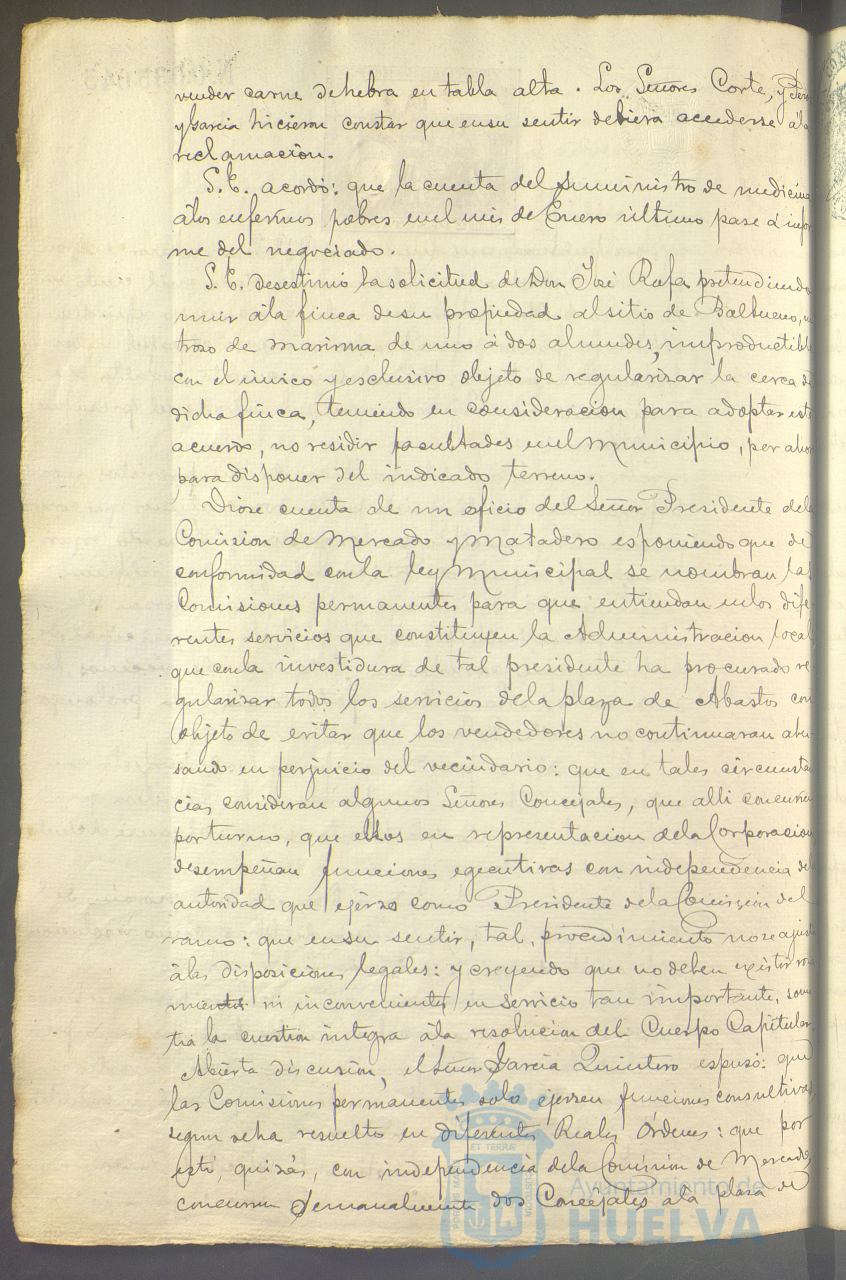 vender carne de hebra en tabla alta. Los Señores Corte, y
y Garcia hicieron constar que en su sentir debiera accederse á la
reclamacion.
S. E. acordó: que la cuenta del suministro de medicina
á los enfermos pobres en el mes de Enero último pase á infor
me del negociado.
S. E. desestimó la solicitud de Don José Rafa pretendiendo
unir á la finca de su propiedad al sitio de Balbueno, un
trozo de marisma de uno á dos almudes, improductible
con el único y esclusivo objeto de regularizar la cerca de
dicha finca, teniendo en consideracion para adoptar este
acuerdo, no residir facultades en el Municipio, por ahora
para disponer del indicado terreno.
Diose cuenta de un oficio del Señor Presidente de la
Comision de Mercado y Matadero esponiendo que de
conformidad con la ley Municipal se nombran las
Comisiones permanentes para que entiendan en los dife-
rentes servicios que constituyen la Administracion local
que con la investidura de tal presidente ha procurado re-
gularizar todos los servicios de la plaza de Abastos con
objeto de evitar que los vendedores no continuaran abu-
sando en perjuicio del vecindario: que en tales circunstan
cias consideran algunos Señores Concejales, que alli concurren
por turno, que ellos en representacion de la Corporacion
desempeñan funciones egecutivas con independencia de la
autoridad que ejerzo como Presidente de la Comision del
ramo: que en su sentir, tal procedimiento no se ajusta
á las disposiciones legales: y creyendo que no deben existir
ni inconvenientes en servicio tan importante, some
tia la cuestion integra á la resolucion del Cuerpo Capitular.
Abierta discusion, el Señor Garcia Quintero espuso: que
las Comisiones permanentes solo ejercen funciones consultivas
segun se ha resuelto en diferentes Reales Órdenes: que por
esto, quizás, con independencia de la Comision de Mercado,
concurren semanalmente dos Concejales á la plaza de
Ayuntamiento de
HUELVA